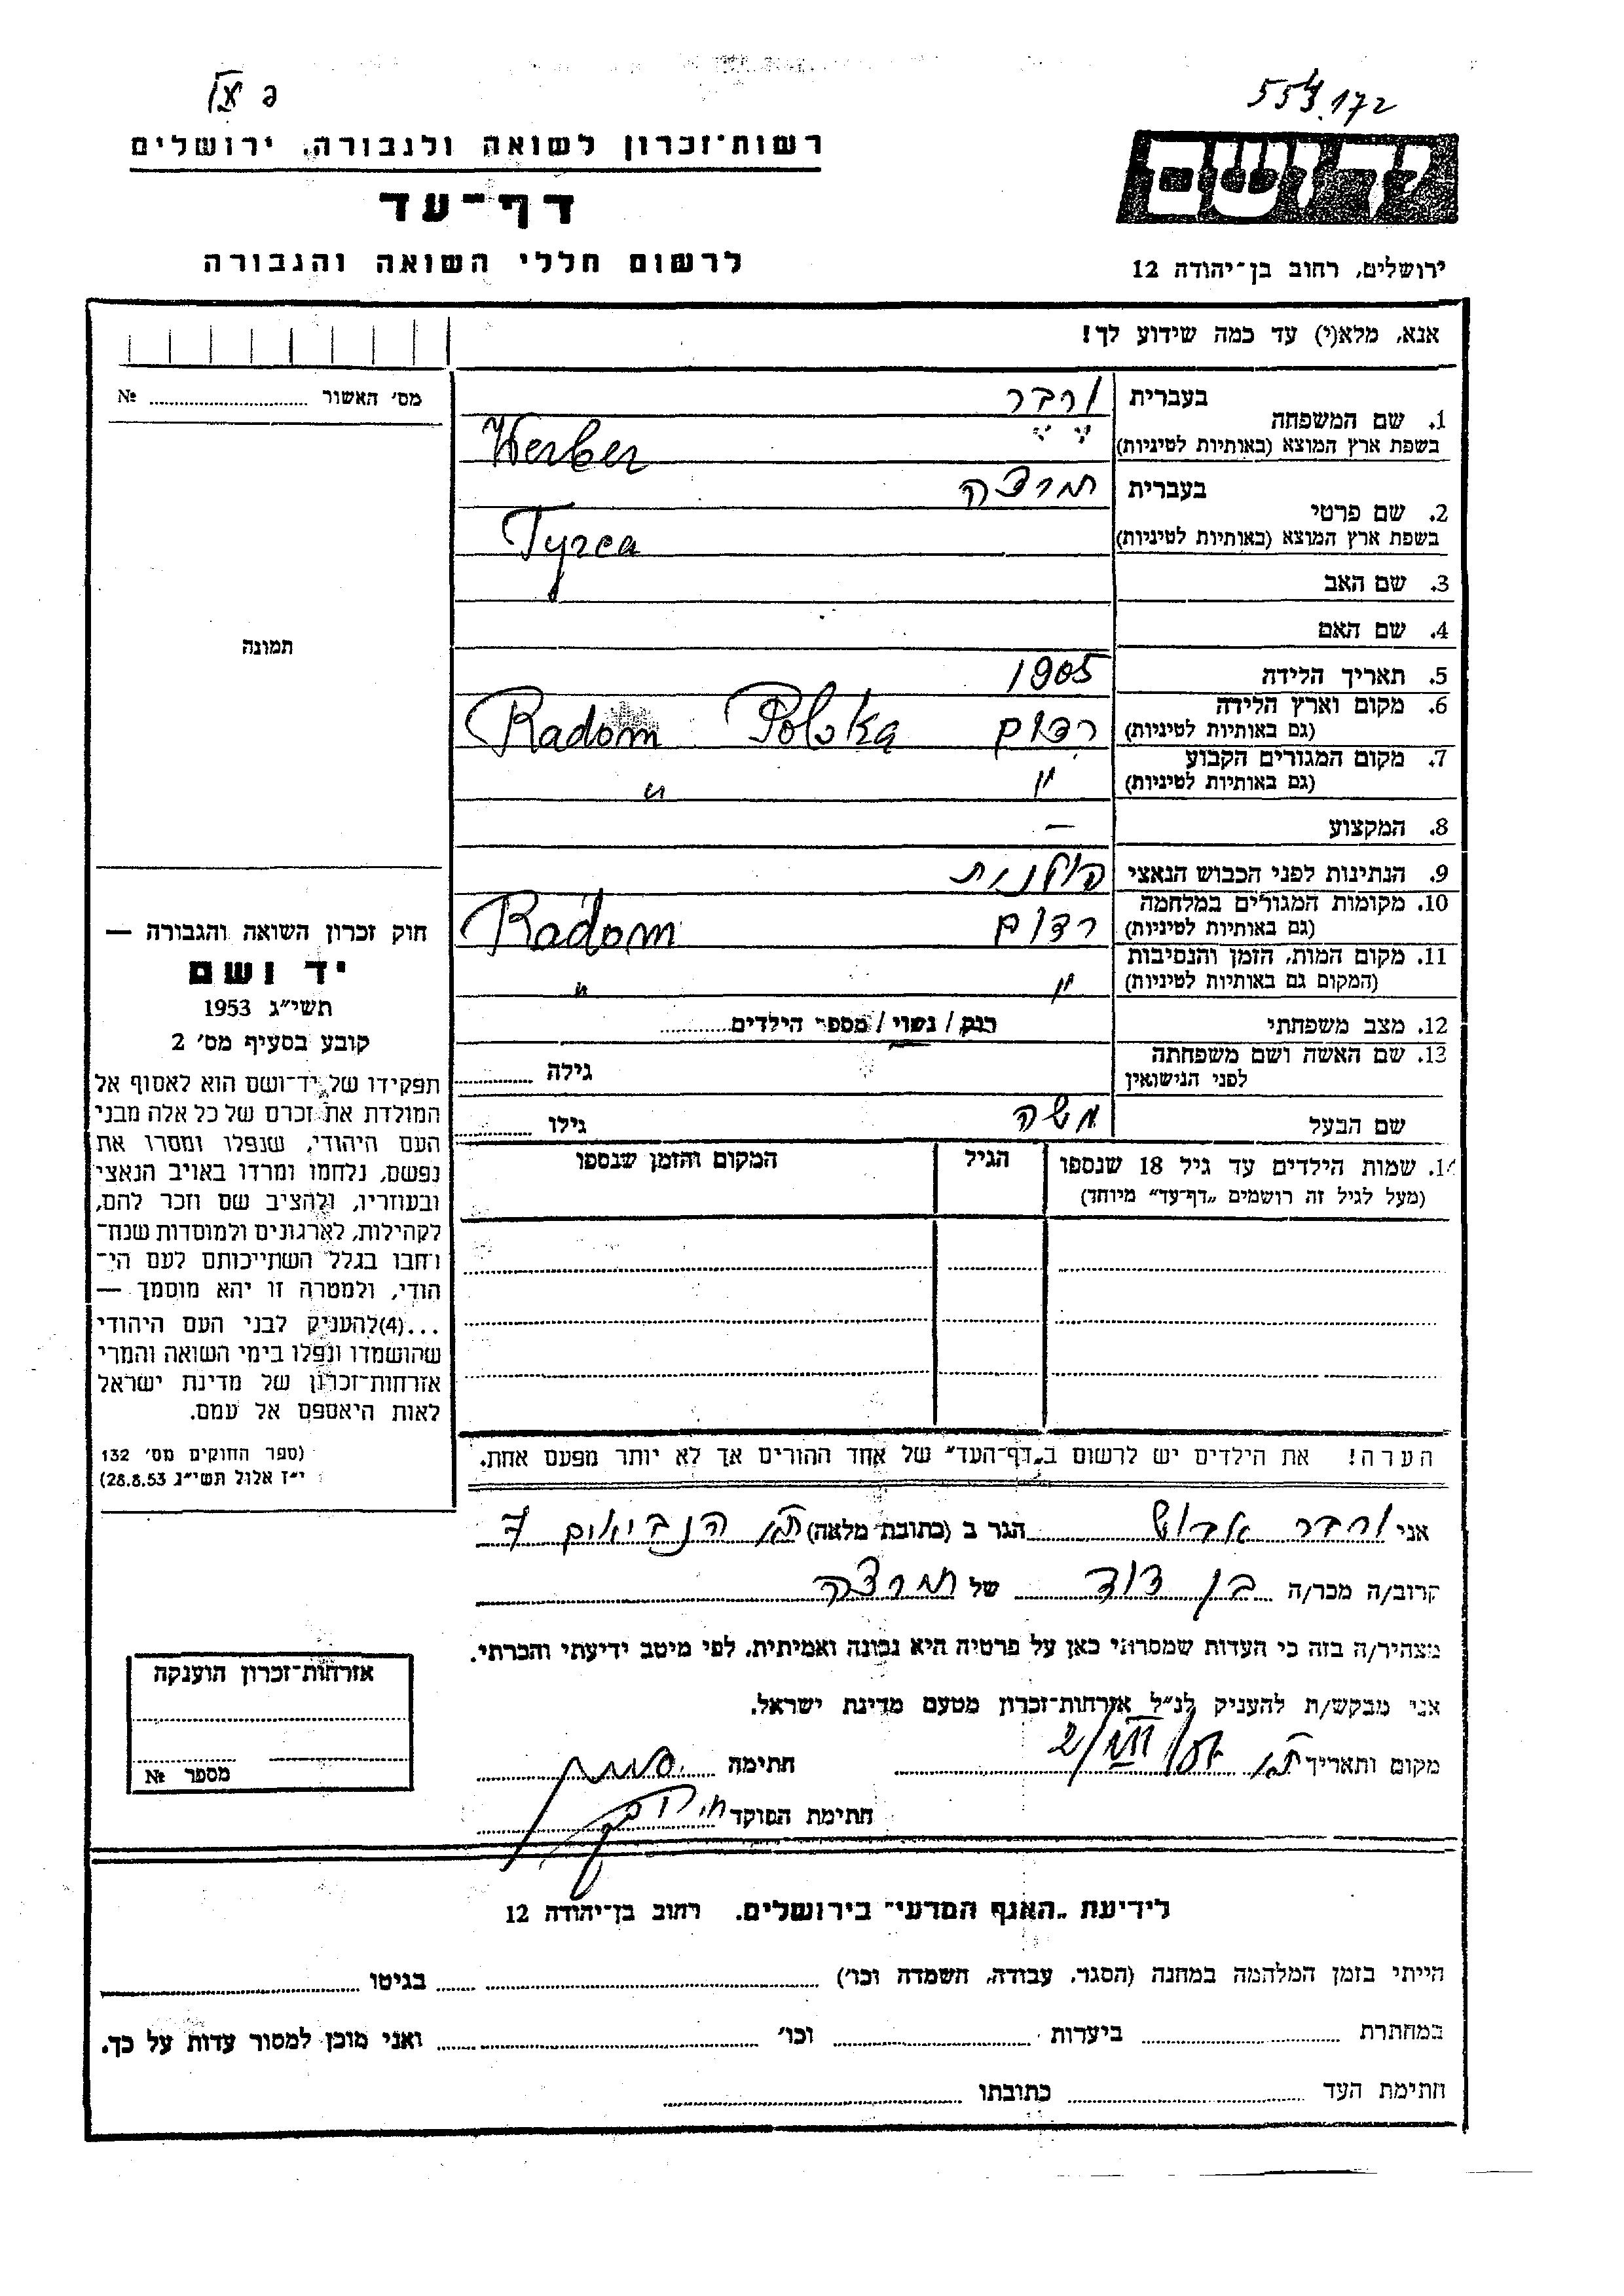 פ XI
554.172
רשות־זכרון לשואה ולגבורה, ירושלים
יד ושם
דף־עד
לרשום חללי השואה והגבורה
ירושלים, רחוב בן־יהודה 12
אנא, מלא(י) עד כמה שידוע לך!
מס׳ האשור № 
בעברית ורבר
1. שם המשפחה
בשפת ארץ המוצא (באותיות לטיניות) Werber
בעברית תורצה
2. שם פרטי
בשפת ארץ המוצא (באותיות לטיניות) Tyrca
3. שם האב
4. שם האם
תמונה
5. תאריך הלידה 1905
6. מקום וארץ הלידה
(גם באותיות לטיניות) רדום Radom Polska
7. מקום המגורים הקבוע
(גם באותיות לטיניות) " "
8. המקצוע —
9. הנתינות לפני הכבוש הנאצי פולנית
10. מקומות המגורים במלחמה
(גם באותיות לטיניות) רדום Radom
11. מקום המות, הזמן והנסיבות
(המקום גם באותיות לטיניות) " "
12. מצב משפחתי רוק / נשוי / מספר הילדים
13. שם האשה ושם משפחתה
לפני הנישואין גילה
שם הבעל משה גילו
14. שמות הילדים עד גיל 18 שנספו הגיל המקום והזמן שנספו
(מעל לגיל זה רושמים „דף־עד” מיוחד)
חוק זכרון השואה והגבורה —
יד ושם
תשי״ג 1953
קובע בסעיף מס׳ 2
תפקידו של יד־ושם הוא לאסוף אל
המולדת את זכרם של כל אלה מבני
העם היהודי, שנפלו ומסרו את
נפשם, נלחמו ומרדו באויב הנאצי
ובעוזריו, ולהציב שם וזכר להם,
לקהילות, לארגונים ולמוסדות שנח־
רחבו בגלל השתייכותם לעם הי־
הודי, ולמטרה זו יהא מוסמך —
...(4)להעניק לבני העם היהודי
שהושמדו ונפלו בימי השואה והמרי
אזרחות־זכרון של מדינת ישראל
לאות היאספם אל עמם.
(ספר החוקים מס׳ 132
י״ז אלול תשי״ג 28.8.53)
הערה! את הילדים יש לרשום ב„דף־העד” של אחד ההורים אך לא יותר מפעם אחת.
אני ורבר הגר ב (כתובת מלאה) ת״א הנביאים 7
קרוב/ה מכר/ה בן דוד של תורצה
מצהיר/ה בזה כי העדות שמסרתי כאן על פרטיה היא נכונה ואמיתית, לפי מיטב ידיעתי והכרתי.
אני מבקש/ת להעניק לנ״ל אזרחות־זכרון מטעם מדינת ישראל.
מקום ותאריך ת״א 2/VIII חתימה
חתימת הפוקד
אזרחות־זכרון הוענקה
מספר №
לידיעת „האגף המדעי” בירושלים. רחוב בן־יהודה 12
הייתי בזמן המלחמה במחנה (הסגר, עבודה, השמדה וכו׳) בגיטו
במחתרת ביערות וכו׳ ואני מוכן למסור עדות על כך.
חתימת העד כתובתו